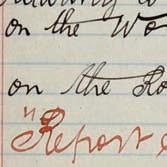 on the Wo
on the Ro
"Report